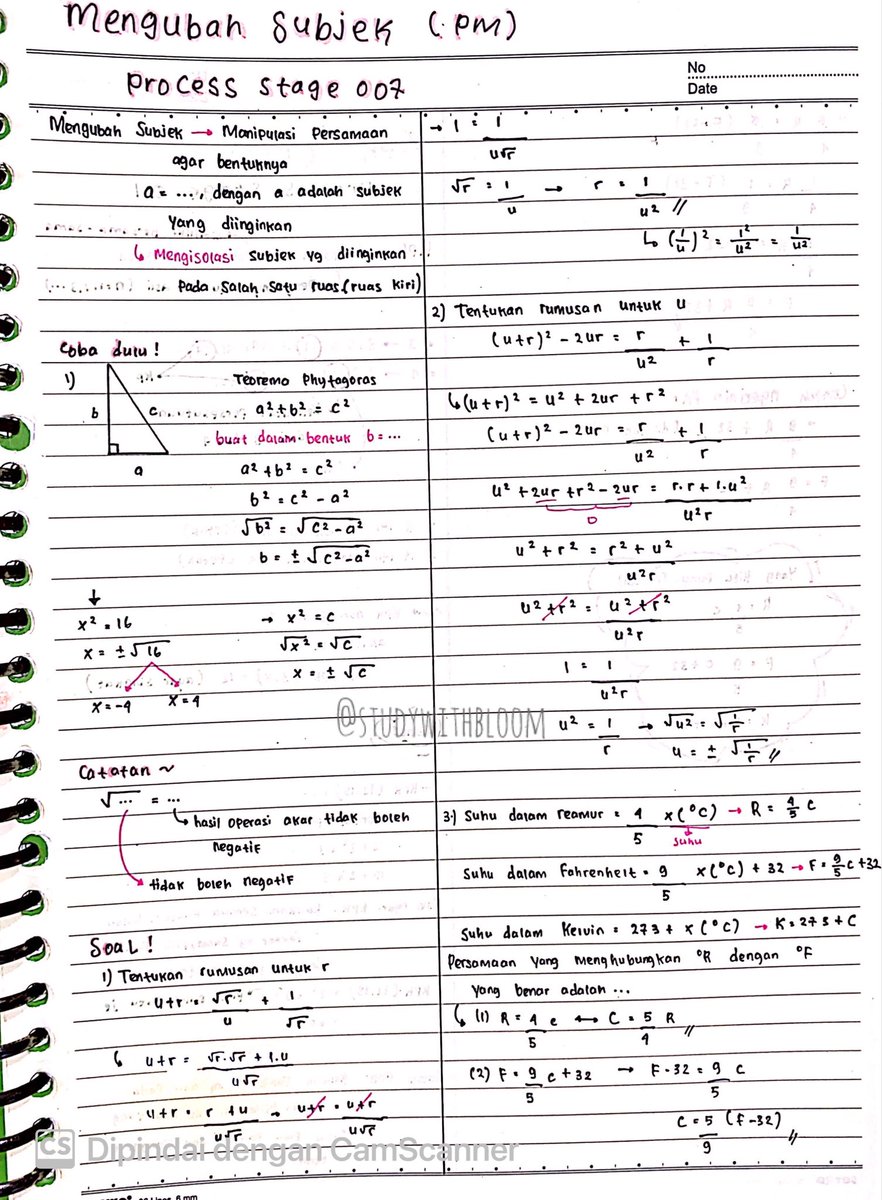 Mengubah Subjek (PM)
Process Stage 007
No
Date
Mengubah Subjek → Manipulasi Persamaan
agar bentuknya
a = ..., dengan a adalah subjek
yang diinginkan
↳ Mengisolasi subjek yg diinginkan
pada salah satu ruas (ruas kiri)
Coba dulu!
1) Teorema Phytagoras
b c a
a² + b² = c²
buat dalam bentuk b = ...
a² + b² = c²
b² = c² - a²
√b² = √c² - a²
b = ± √c² - a²
↓
x² = 16
x = ± √16
x = -4 x = 4
→ x² = c
√x² = √c
x = ± √c
Catatan ~
√... = ...
↳ hasil operasi akar tidak boleh
negatif
→ tidak boleh negatif
Soal!
1) Tentukan rumusan untuk r
u + r = √r/u + 1/√r
↳ u + r = √r.√r + 1.u / u√r
u + r = r + u / u√r → u + r = u + r / u√r
→ 1 = 1/u√r
√r = 1/u → r = 1/u² //
↳ (1/u)² = 1²/u² = 1/u²
2) Tentukan rumusan untuk u
(u+r)² - 2ur = r/u² + 1/r
↳ (u+r)² = u² + 2ur + r²
(u+r)² - 2ur = r/u² + 1/r
u² + 2ur + r² - 2ur = r.r + 1.u² / u²r
0
u² + r² = r² + u² / u²r
u² + r² = u² + r² / u²r
1 = 1/u²r
u² = 1/r → √u² = √1/r
u = ± √1/r //
3.) Suhu dalam reamur = 4/5 x (°C) → R = 4/5 C
suhu
Suhu dalam Fahrenheit = 9/5 x (°C) + 32 → F = 9/5 C + 32
Suhu dalam Kelvin = 273 + x (°C) → K = 273 + C
Persamaan yang menghubungkan °R dengan °F
yang benar adalah ...
↳ (1) R = 4/5 C ↔ C = 5/4 R //
(2) F = 9/5 C + 32 → F - 32 = 9/5 C
C = 5/9 (F - 32) //
@STUDYWITHBLOOM
CS Dipindai dengan CamScanner